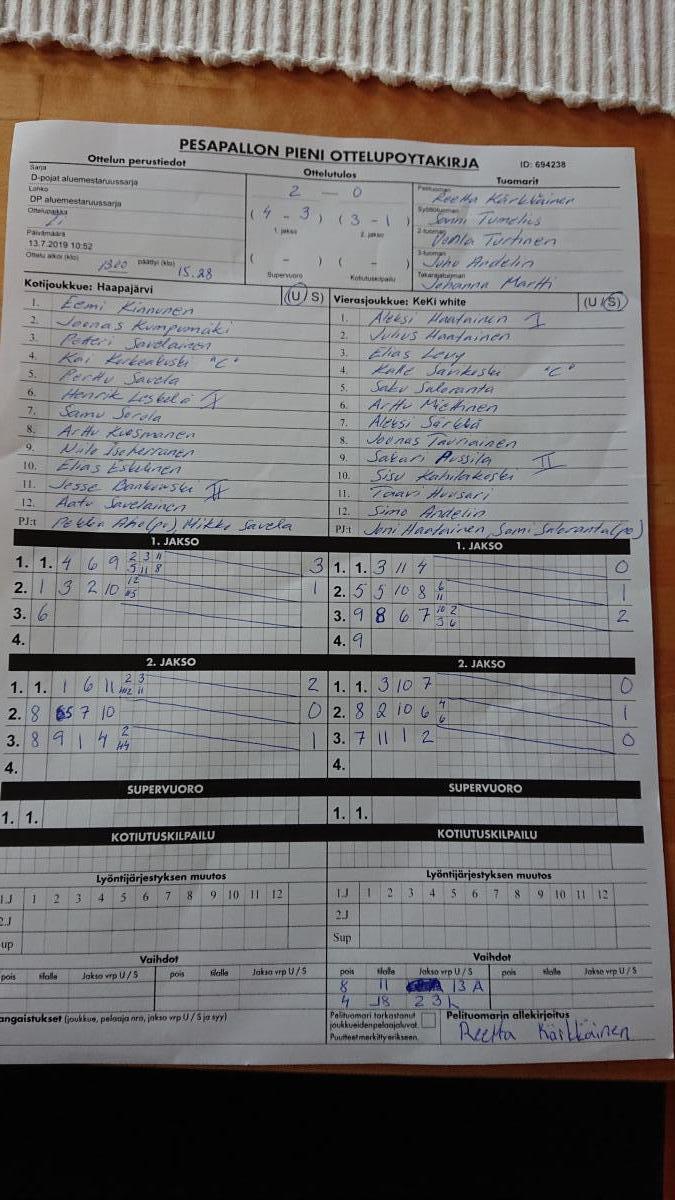 PESAPALLON PIENI OTTELUPOYTAKIRJA
ID: 694238
Ottelun perustiedot
Sarja
D-pojat aluemestaruussarja
Lohko
DP aluemestaruussarja
Ottelupaikka
Päivämäärä
13.7.2019 10:52
Ottelu alkoi (klo) 1300 päättyi (klo) 15.28
Ottelutulos
2 — 0
( 4 - 3 ) ( 3 - 1 )
1. jakso 2. jakso
( - ) ( - )
Supervuoro Kotiutuskilpailu
Tuomarit
Pelituomari
Reetta Kärkkäinen
Syöttötuomari
Sanni Tumelius
2-tuomari
Turtinen
3-tuomari
Juho Andelin
Takarajatuomari
Johanna Martti
Kotijoukkue: Haapajärvi (U / S)
1. Eemi Kinnunen
2. Joonas Kumpumäki
3. Petteri Savelainen
4. Kai "C"
5. Perttu Savela
6. Henrik Leskelä I
7. Samu Sorola
8. Arttu Kuosmanen
9. Niilo
10. Elias Eskelinen
11. Jesse II
12. Aatu Savelainen
PJ:t Pekka Aho(pv), Mikko Savela
Vierasjoukkue: KeKi white (U / S)
1. Aleksi Haatainen I
2. Julius Haatainen
3. Elias Levy
4. Kalle Sarikoski "C"
5. Saku Saloranta
6. Arttu Miettinen
7. Aleksi Särkkä
8. Joonas Tauriainen
9. Sakari Pussila II
10. Sisu Kahilakoski
11. Taavi Huusari
12. Simo Andelin
PJ:t Joni Haatainen, Sami Saloranta(po)
1. JAKSO
1. 1. 4 6 9 2 3 11 5 11 8 3
2. 1 3 2 10 12 #5 1
3. 6
4.
1. JAKSO
1. 1. 3 11 4 0
2. 5 5 10 8 6 11 1
3. 9 8 6 7 10 2 3 6 2
4. 9
2. JAKSO
1. 1. 1 6 11 2 3 11 2
2. 8 5 7 10 0
3. 8 9 1 4 2 #4 1
4.
2. JAKSO
1. 1. 3 10 7 0
2. 8 2 10 6 4 6 1
3. 7 11 1 2 0
4.
SUPERVUORO
1. 1.
SUPERVUORO
1. 1.
KOTIUTUSKILPAILU
KOTIUTUSKILPAILU
Lyöntijärjestyksen muutos
1.J 1 2 3 4 5 6 7 8 9 10 11 12
2.J
up
Lyöntijärjestyksen muutos
1.J 1 2 3 4 5 6 7 8 9 10 11 12
2.J
Sup
Vaihdot
pois tilalle Jakso vrp U / S pois tilalle Jakso vrp U / S
Vaihdot
pois tilalle Jakso vrp U / S pois tilalle Jakso vrp U / S
8 11 13 A
4 8 2 3
angaistukset (joukkue, pelaaja nro, jakso vrp U / S ja syy)
Pelituomari tarkastanut
joukkueiden pelaajaluvat.
Puutteet merkitty erikseen.
Pelituomarin allekirjoitus
Reetta Kärkkäinen